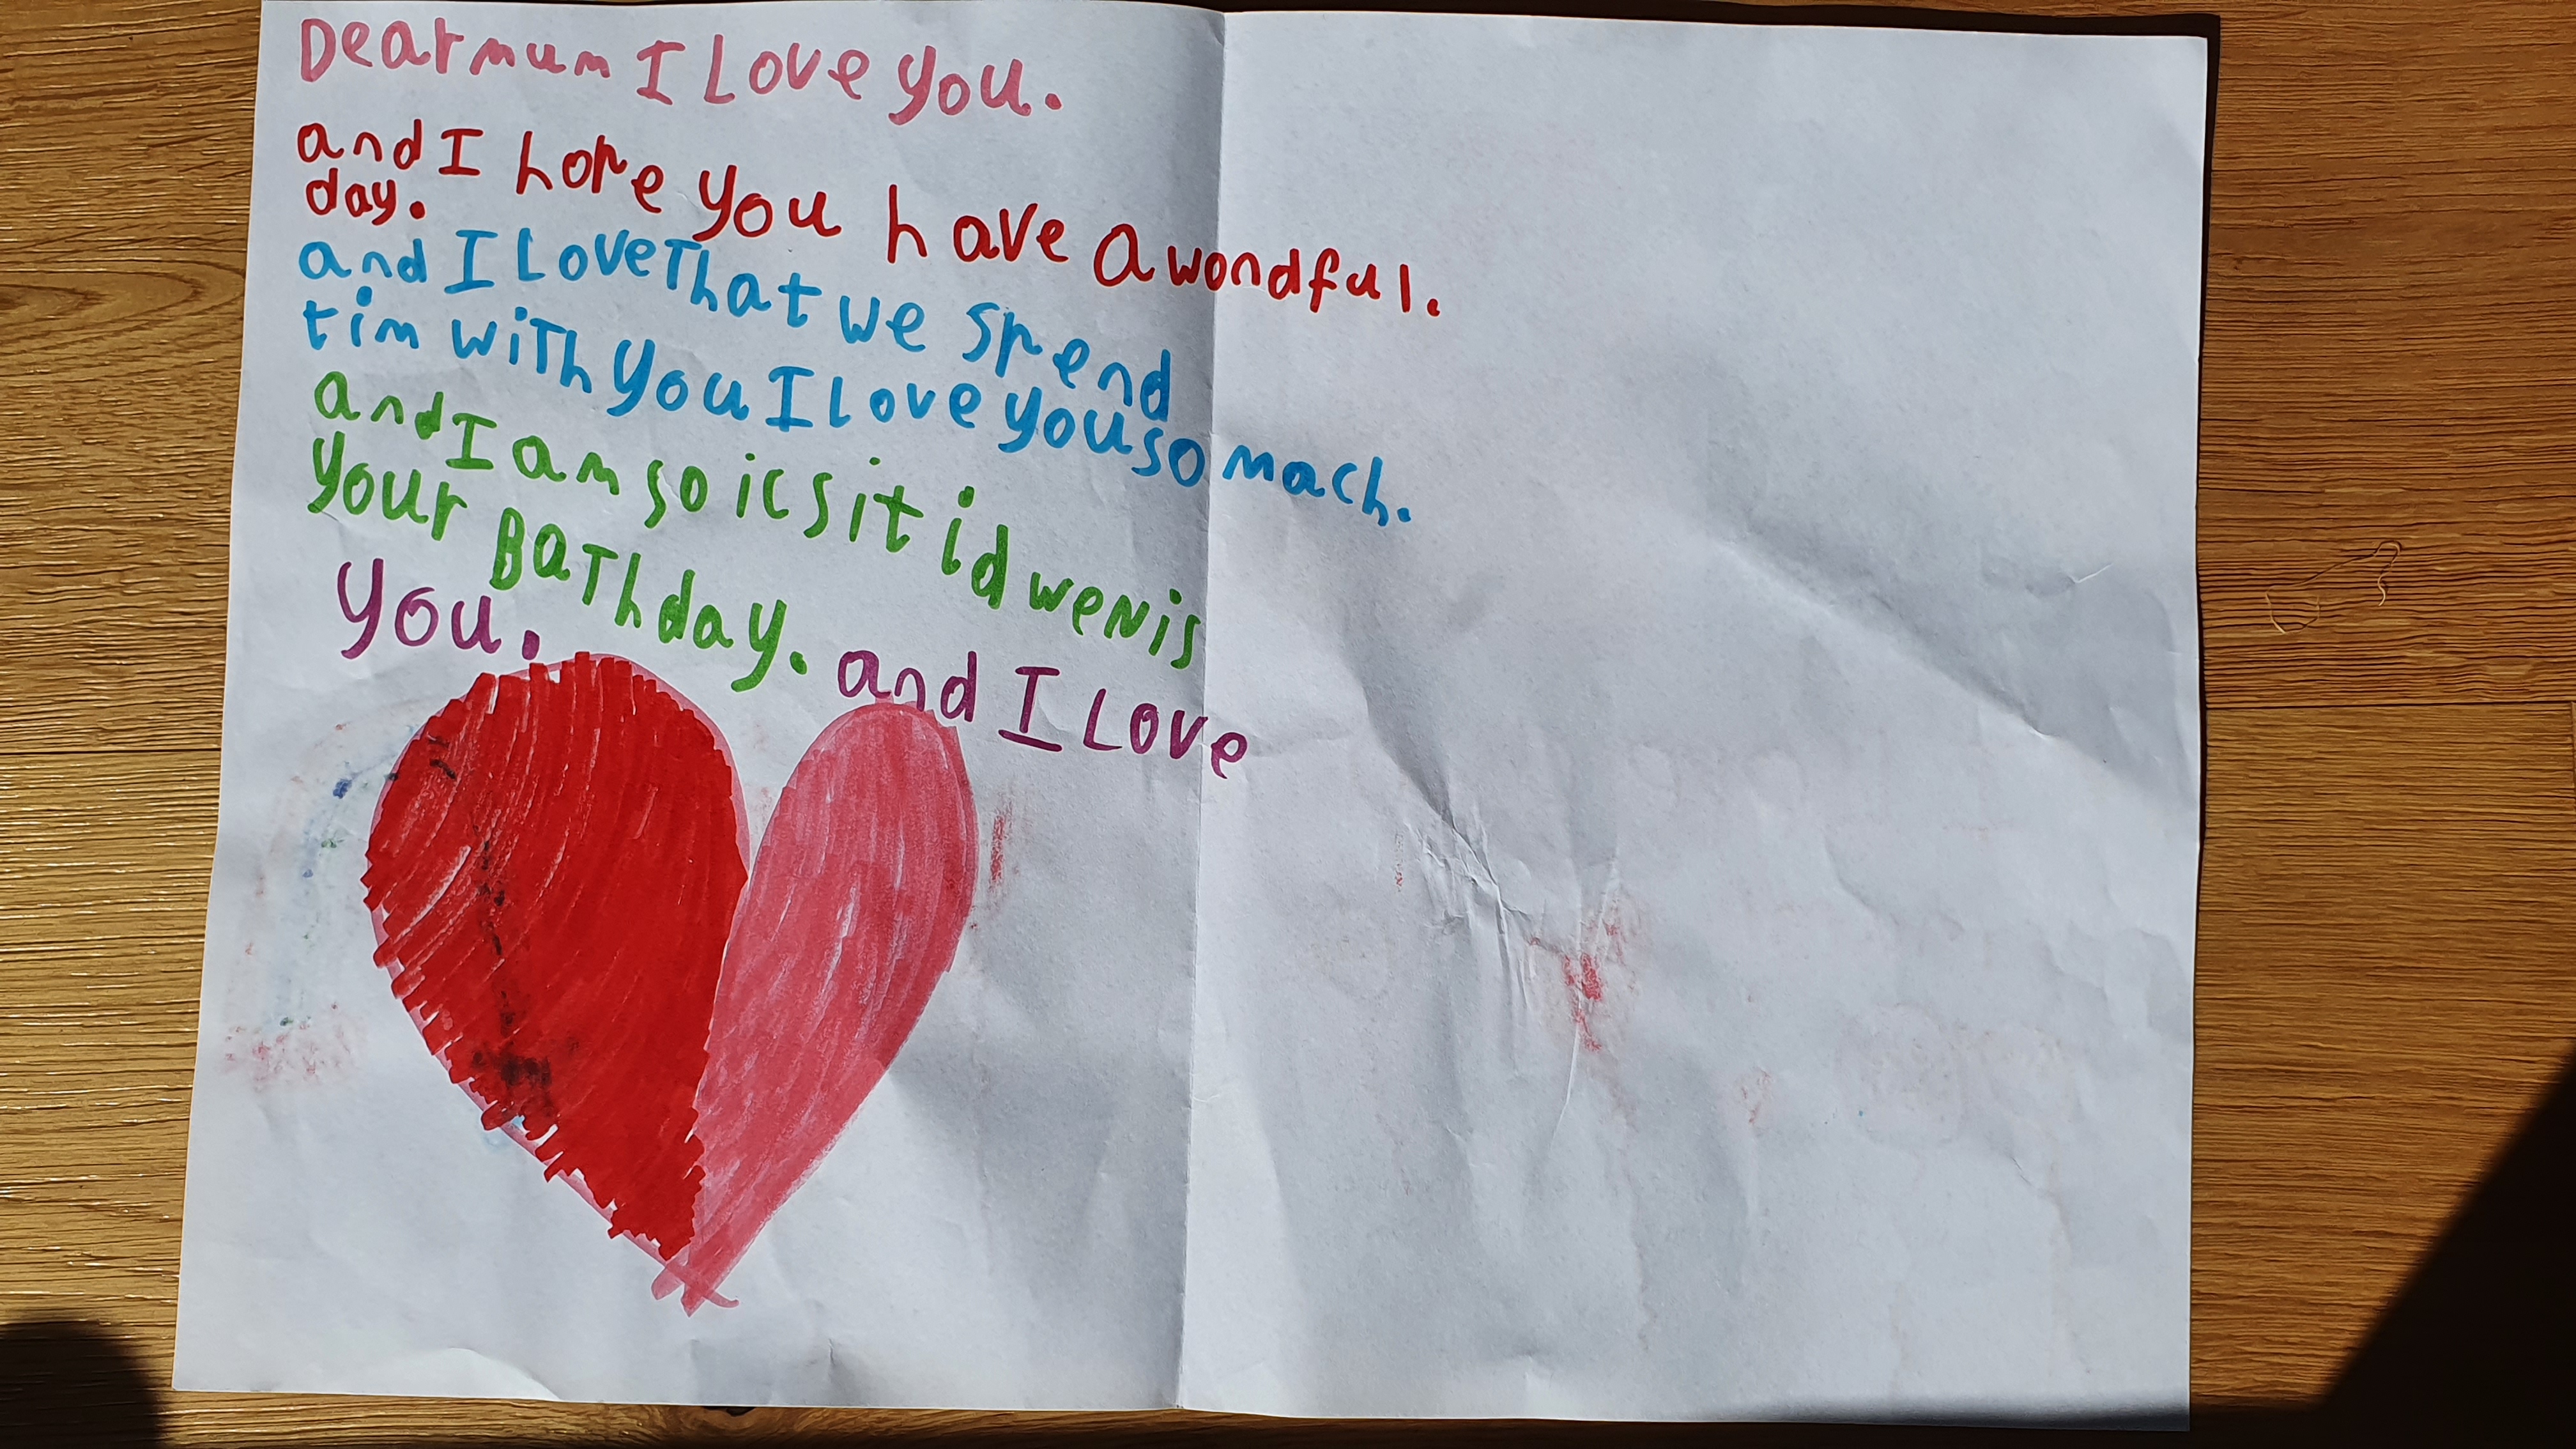 Dear mum I Love you.
and I hope you have a wondful.
day.
and I Love That we spend
tim wiTh you I love you so mach.
and I am so icsitid wen is
your BaThday. and I Love
you.